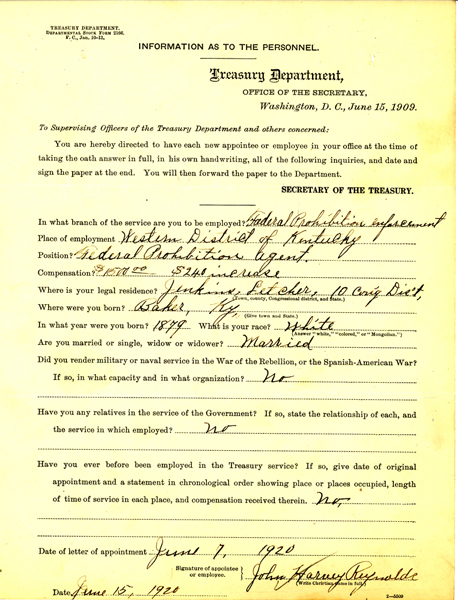 TREASURY DEPARTMENT.
DEPARTMENTAL STOCK FORM 2106.
INFORMATION AS TO THE PERSONNEL.
Treasury Department,
OFFICE OF THE SECRETARY,
Washington, D. C., June 15, 1909.
To Supervising Officers of the Treasury Department and others concerned:
You are hereby directed to have each new appointee or employee in your office at the time of
taking the oath answer in full, in his own handwriting, all of the following inquiries, and date and
sign the paper at the end. You will then forward the paper to the Department.
SECRETARY OF THE TREASURY.
In what branch of the service are you to be employed? Federal Prohibition enforcement
Place of employment Western District of Kentucky
Position? Federal Prohibition Agent
Compensation? $240 increase
Where is your legal residence? Jenkins, Letcher, 10. Cong Dist,
(Town, county, Congressional district, and State.)
Where were you born? Baker, Ky,
(Give town and State.)
In what year were you born? 1879 What is your race? White
(Answer "white," "colored," or "Mongolian.")
Are you married or single, widow or widower? Married
Did you render military or naval service in the War of the Rebellion, or the Spanish-American War?
If so, in what capacity and in what organization? No
Have you any relatives in the service of the Government? If so, state the relationship of each, and
the service in which employed? No
Have you ever before been employed in the Treasury service? If so, give date of original
appointment and a statement in chronological order showing place or places occupied, length
of time of service in each place, and compensation received therein. No,
Date of letter of appointment June 7, 1920
Signature of appointee or employee. John Harvey Reynolds
(Write Christian name in full.)
Date June 15, 1920